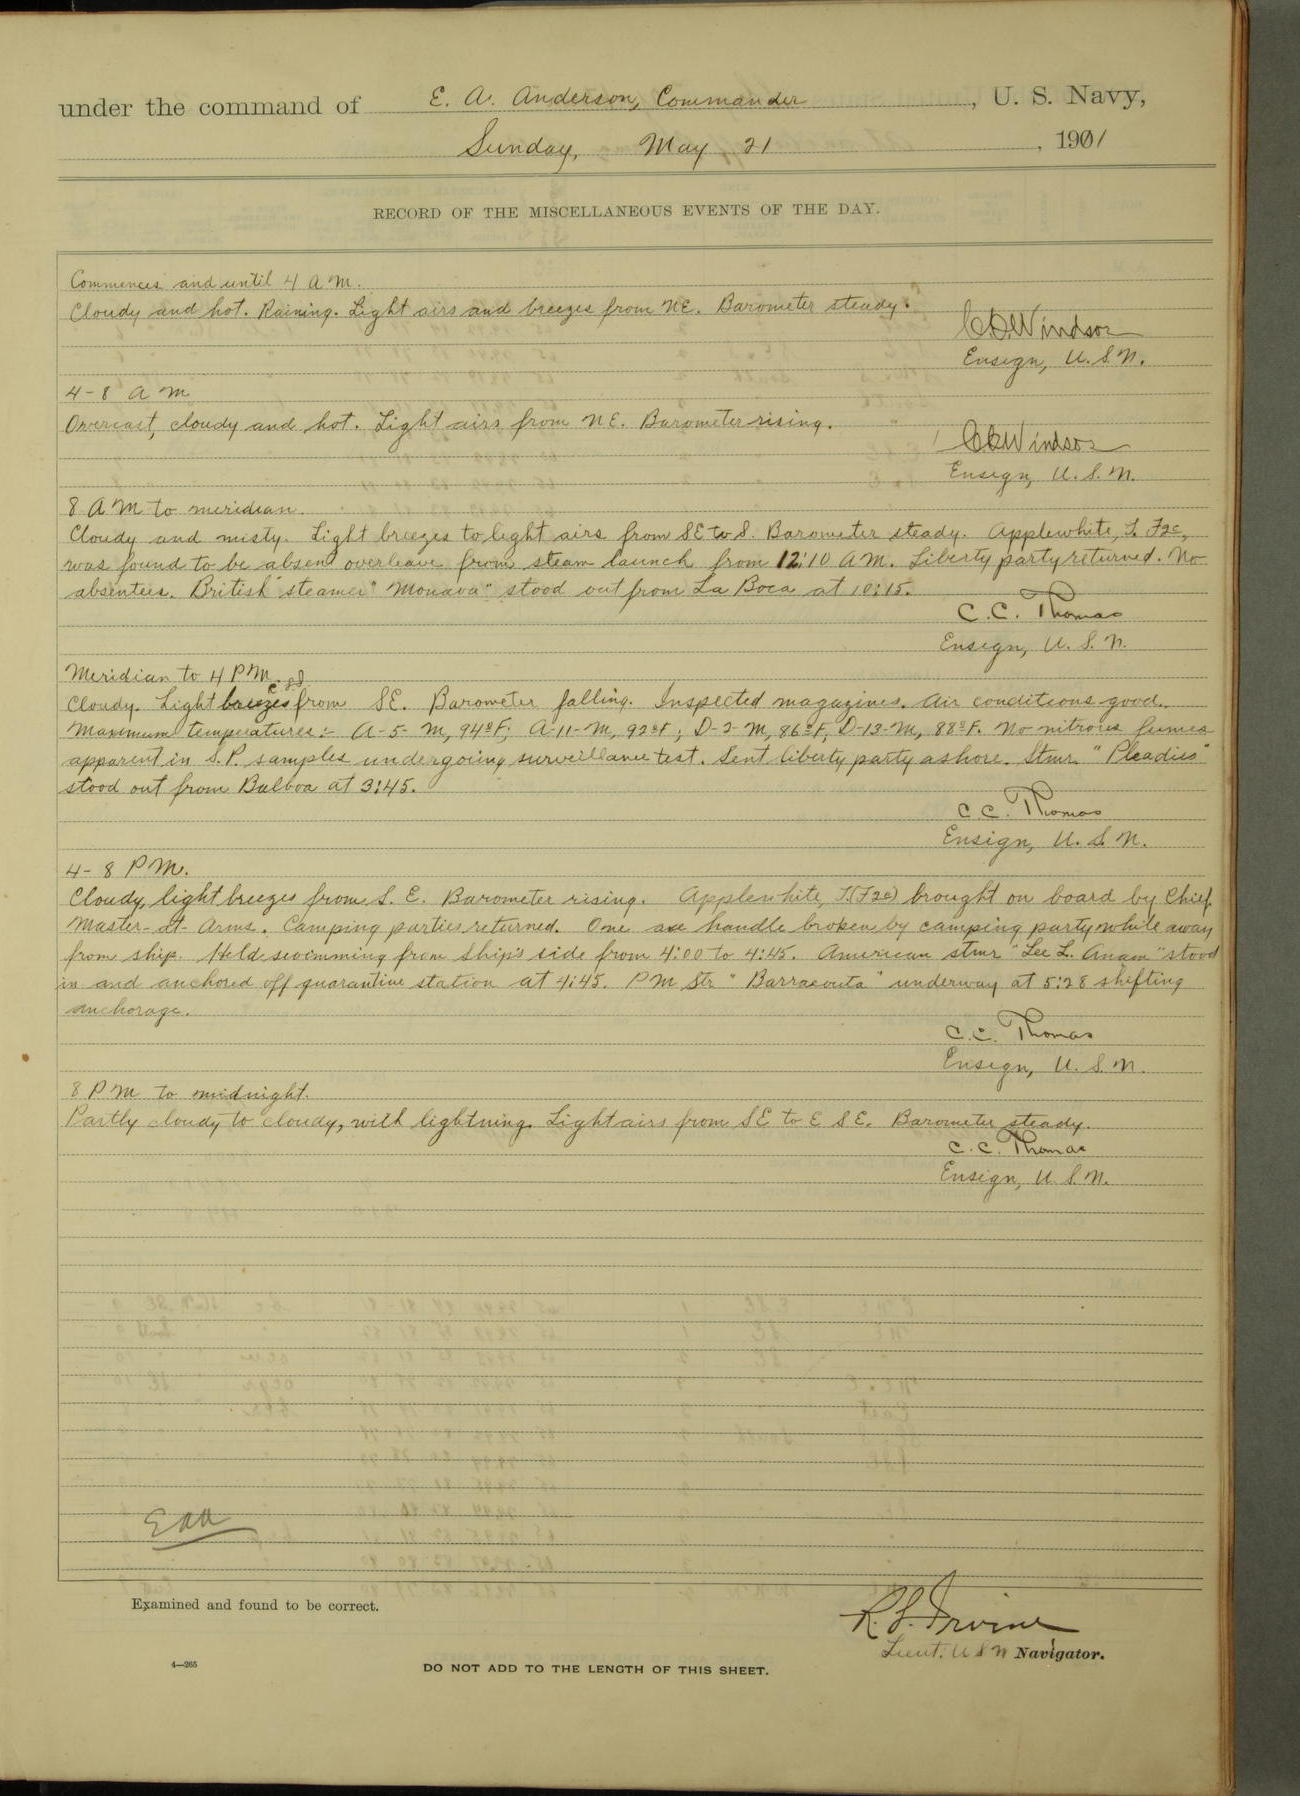 under the command of E. A. Anderson, Commander, U. S. Navy,
Sunday, May 21, 1901
RECORD OF THE MISCELLANEOUS EVENTS OF THE DAY.
Commences and until 4 A M.
Cloudy and hot. Raining. Light airs and breezes from NE. Barometer steady.
Windsor
Ensign, U. S. N.
4-8 A M
Overcast, cloudy and hot. Light airs from NE. Barometer rising.
Windsor
Ensign, U. S. N.
8 A M to meridian.
Cloudy and misty. Light breezes to light airs from SE to S. Barometer steady. Applewhite, F2c,
was found to be absent overleave from steam launch from 12:10 A M. Liberty party returned. No
absentees. British steamer " " stood out from La Boca at 10:15.
C. C. Thomas
Ensign, U. S. N.
Meridian to 4 P M.
Cloudy. Light breezes from SE. Barometer falling. Inspected magazines. Air conditions good.
Maximum temperatures:- A-5-M, 94°F; A-11-M, 92°F; D-2-M, 86°F, D-13-M, 88°F. No nitrous fumes
apparent in S.P. samples undergoing surveillance test. Sent liberty party ashore. Stmr. "Pleadies"
stood out from Balboa at 3:45.
C. C. Thomas
Ensign, U. S. N.
4-8 P M.
Cloudy, light breezes from S. E. Barometer rising. Applewhite, (F2c) brought on board by Chief
Master-at-Arms. Camping parties returned. One axe handle broken by camping party while away
from ship. Held swimming from ship's side from 4:00 to 4:45. American stmr "Lee L. " stood
in and anchored off quarantine station at 4:45. P M Str "Barracouta" underway at 5:28 shifting
anchorage.
C. C. Thomas
Ensign, U. S. N.
8 P M to midnight.
Partly cloudy to cloudy, with lightning. Light airs from SE to E SE. Barometer steady.
C. C. Thomas
Ensign, U. S. N.
EAA
Examined and found to be correct.
Irvine
Lieut. U S N Navigator.
4—265
DO NOT ADD TO THE LENGTH OF THIS SHEET.